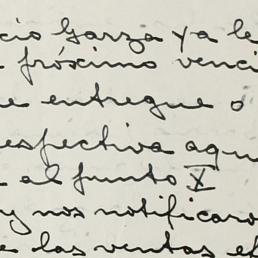 cio Garza ya le
próximo venci
e entregue o
espectiva aqu
al punto X
y nos notificaro
e las ventas el